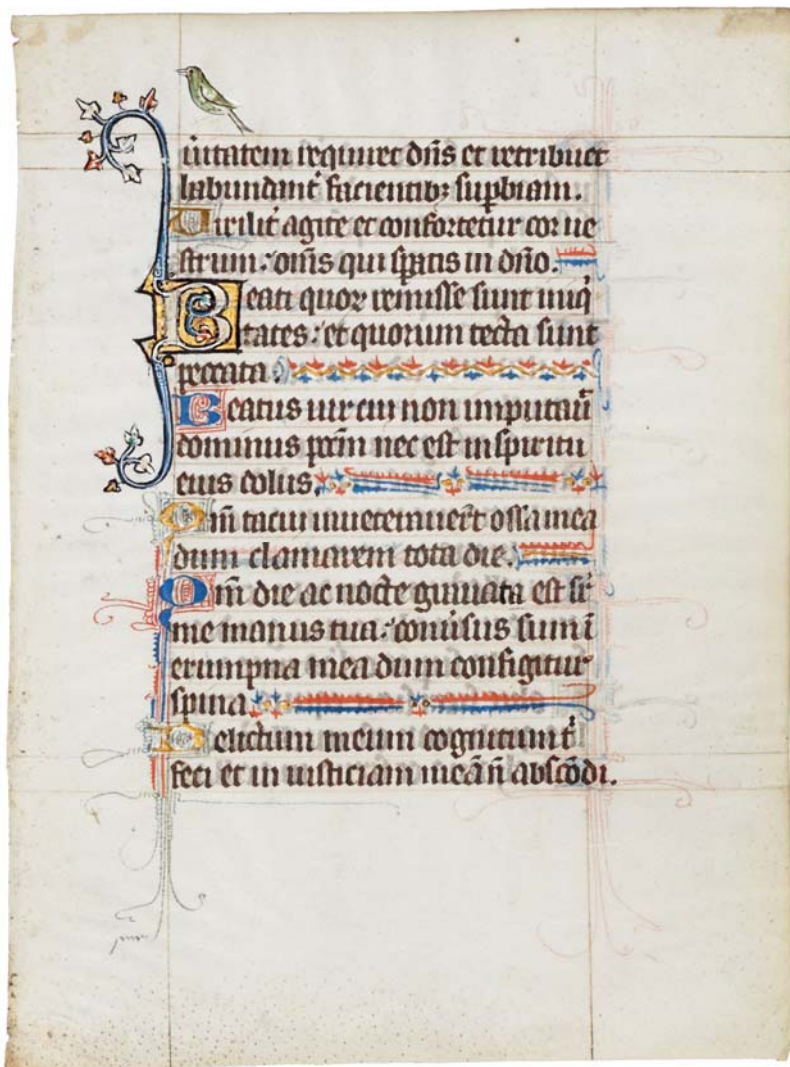 uitatem requiret dñs et retribuet
habundant᷑ facientibꝫ supbiam.
Uirilit᷑ agite et confortetur cor ue
strum: om̃s qui spatis in dño.
Beati quoꝝ remisse sunt iniq̇
tates: et quorum tecta sunt
peccata.
Beatus uir cui non imputau᷑
dominus pc̃cm nec est in spiritu
eius dolus.
Qm̃ tacui inueterauer̃t ossa mea
dum clamarem tota die.
Qm̃ die ac nocte grauata est sr̃
me manus tua: conuisus sum ĩ
erumpna mea dum configitur
spina.
Delictum meum cognitum t᷑
feci et in iusticiam meã ñ abscõdi.